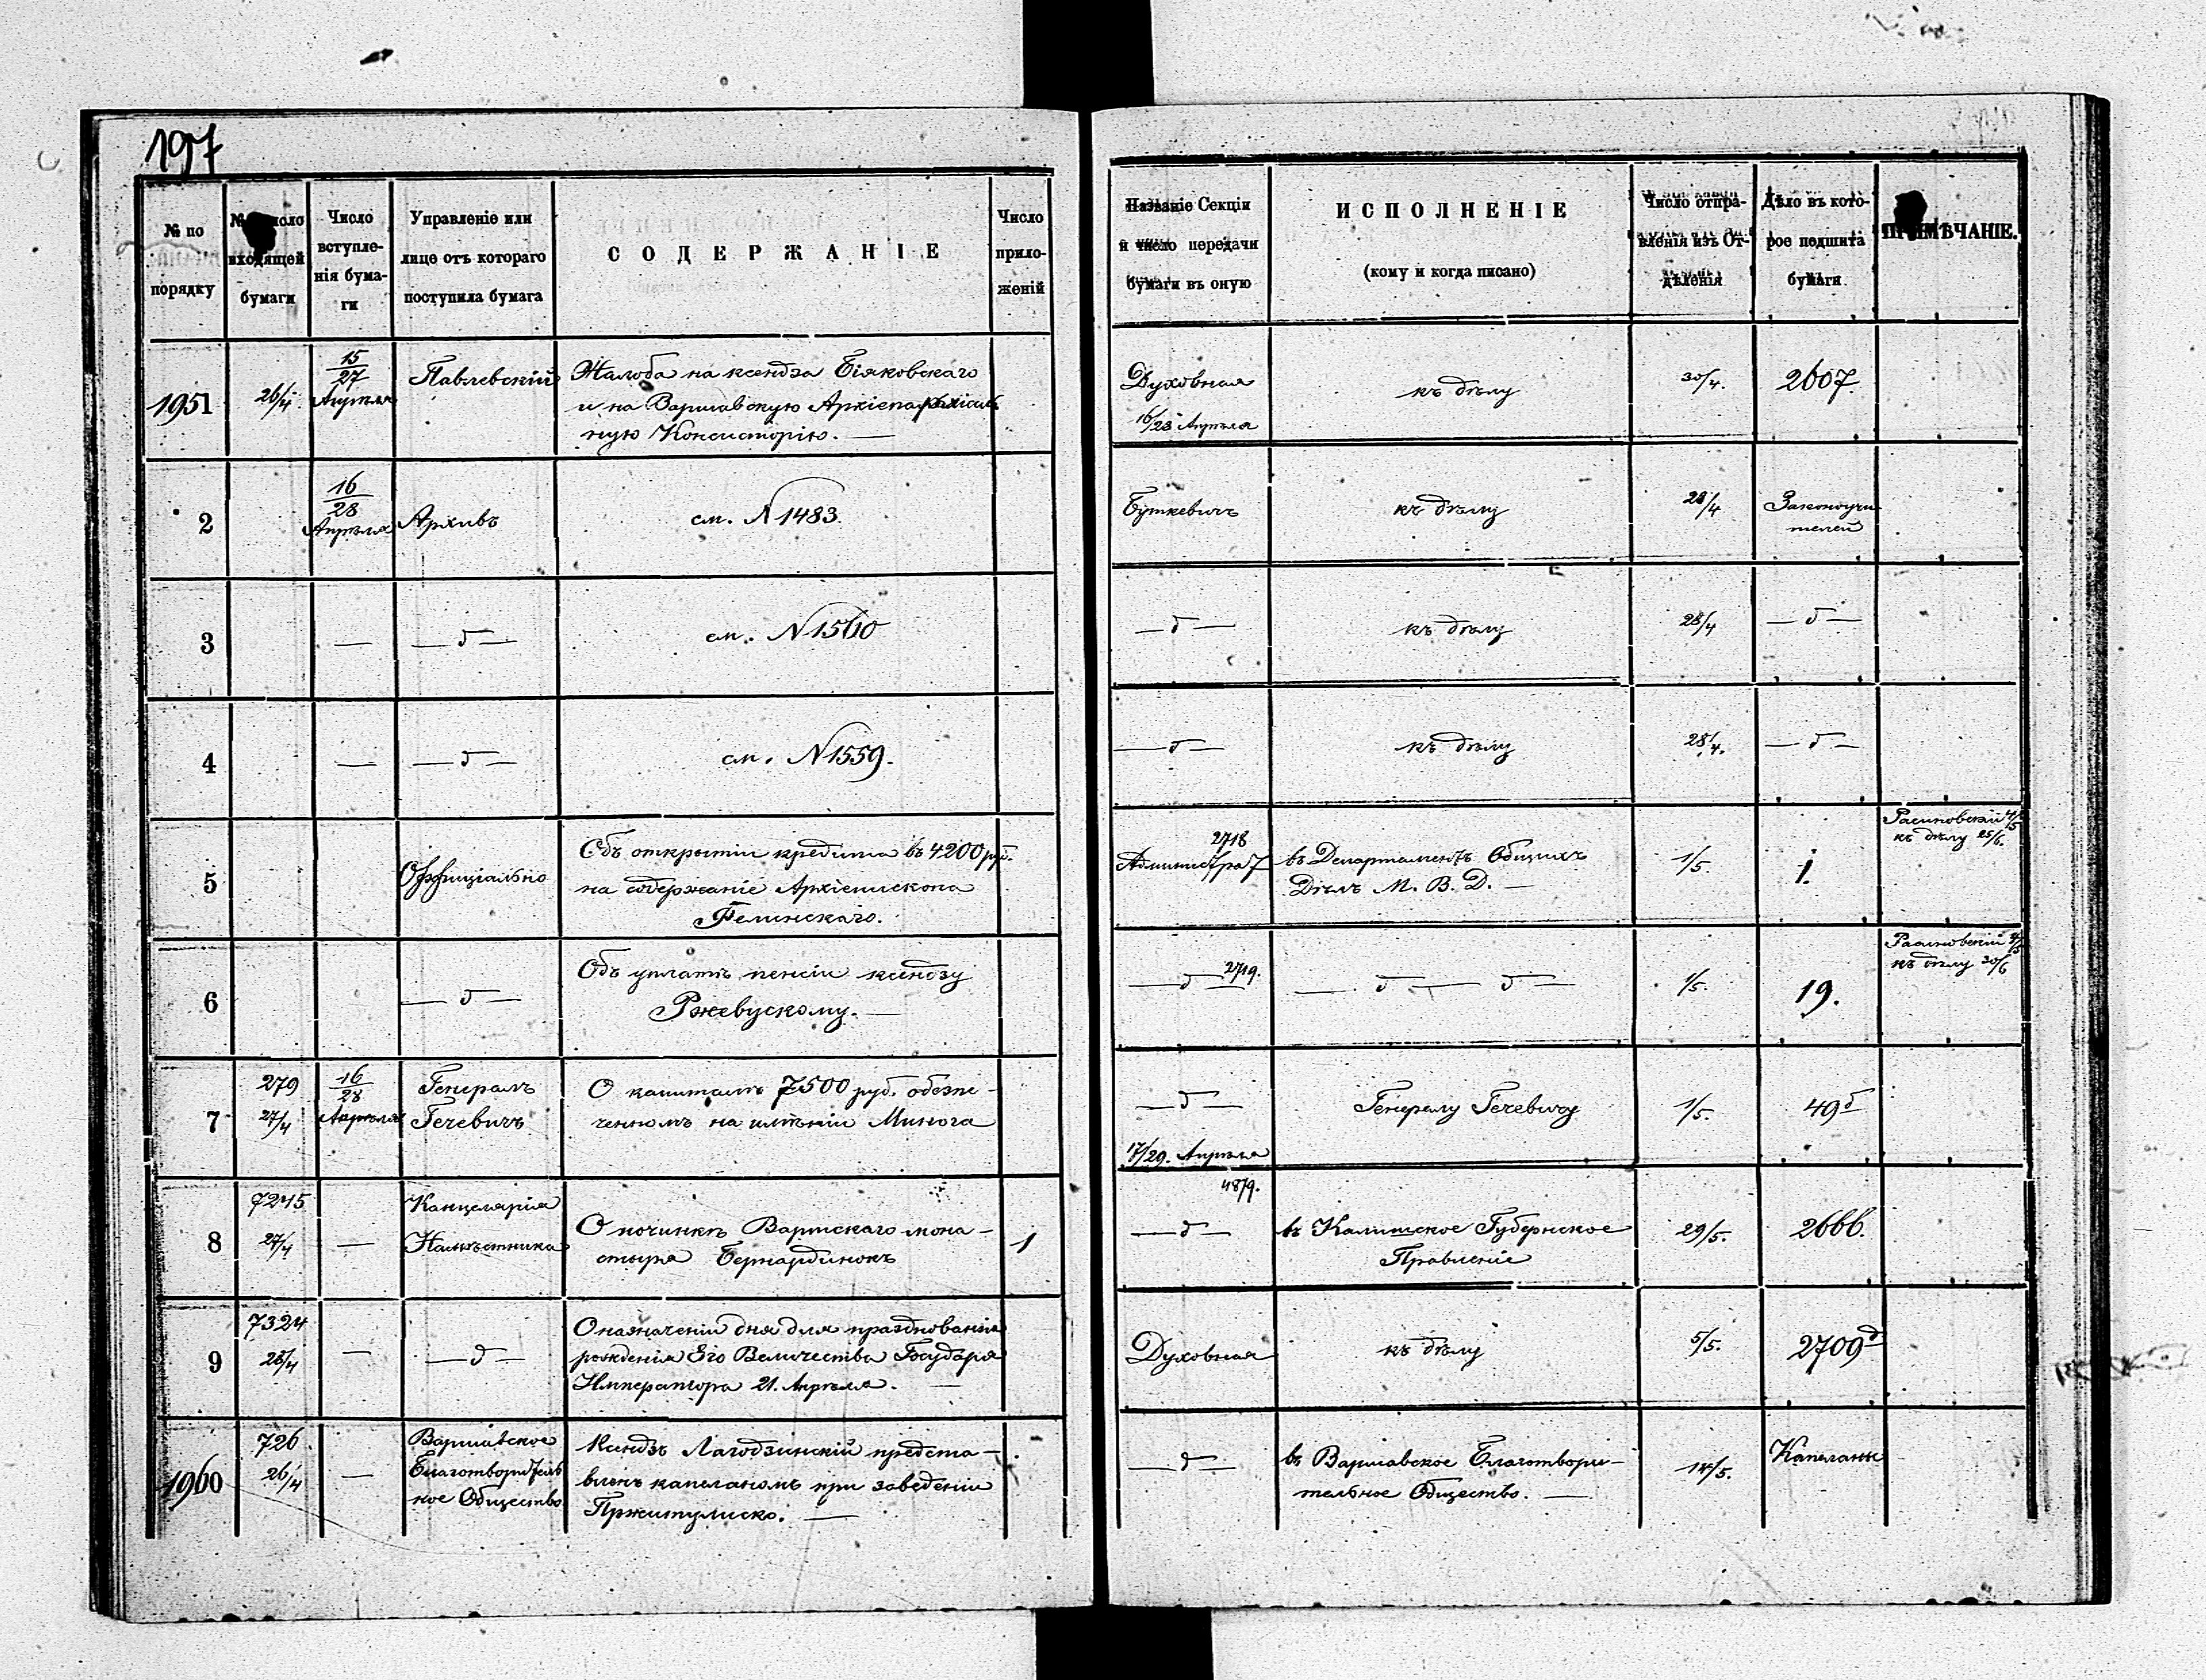 197
№ по порядку
число входящей бумаги
Число вступле-нія бума-ги
Управленіе или лице отъ котораго поступила бумага
СОДЕРЖАНІЕ
Число прило-женій
Названіе Секціи и число передачи бумаги въ оную
ИСПОЛНЕНІЕ
(кому и когда писано)
Число отпра-вленія изъ От-дѣленія
Дѣло въ кото-рое подшита бумаги
ПРИМѢЧАНІЕ.
1951
26/4
15/27 Апрѣля
Павлевскій
Жалоба на ксендза Біяковскаго
и на Варшавскую
ную Консисторію. —
Духовная
16/28 Апрѣля
къ дѣлу
30/4.
2607.
2
16/28 Апрѣля
Архивъ
см. N 1483.
Буткевичъ
къ дѣлу
28/4
Законоучи
телей
3
—
— д —
см. N 1560
— д —
къ дѣлу
28/4
— д —
4
—
— д —
см. N 1559.
— д —
къ дѣлу
28/4.
— д —
5
Оффиціально
Объ открытіи кредита въ 4200 руб.
на содержаніе Архіепископа
Фелинскаго.
2718
въ Департаментъ Общихъ
Дѣлъ М. В. Д. —
1/5.
1.
къ дѣлу 25/6.
6
— д —
Объ уплатѣ пенсіи ксендзу
Ржевускому. —
— д — 2719.
— д — д —
1/5.
19.
къ дѣлу 30/6
7
279
27/4
16/28 Апрѣля
Генералъ
Гечевичъ
О капиталѣ 7500 руб. обезпе-
ченномъ на имѣніи Минога
— д —
17/29. Апрѣля
Генералу Гечевичу
1/5.
49д
8
7245
27/4
—
Канцелярія
Намѣстника
О починкѣ Вартскаго мона-
стыря Бернардинокъ
1
4879.
— д —
въ Калишское Губернское
Правленіе
29/5.
2666.
9
7324
28/4
—
— д —
О назначеніи дня для празднованія
рожденія Его Величества Государя
Императора 21. Апрѣля. —
Духовная
къ дѣлу
5/5.
2709д
1960
726
26/4
—
Варшавское
Благотворитель
ное Общество
Ксендзъ Лагодзинскій предста-
вленъ капеланомъ при заведеніи
Пржитулиско. —
— д —
въ Варшавское Благотвори-
тельное Общество. —
14/5.
Капелани